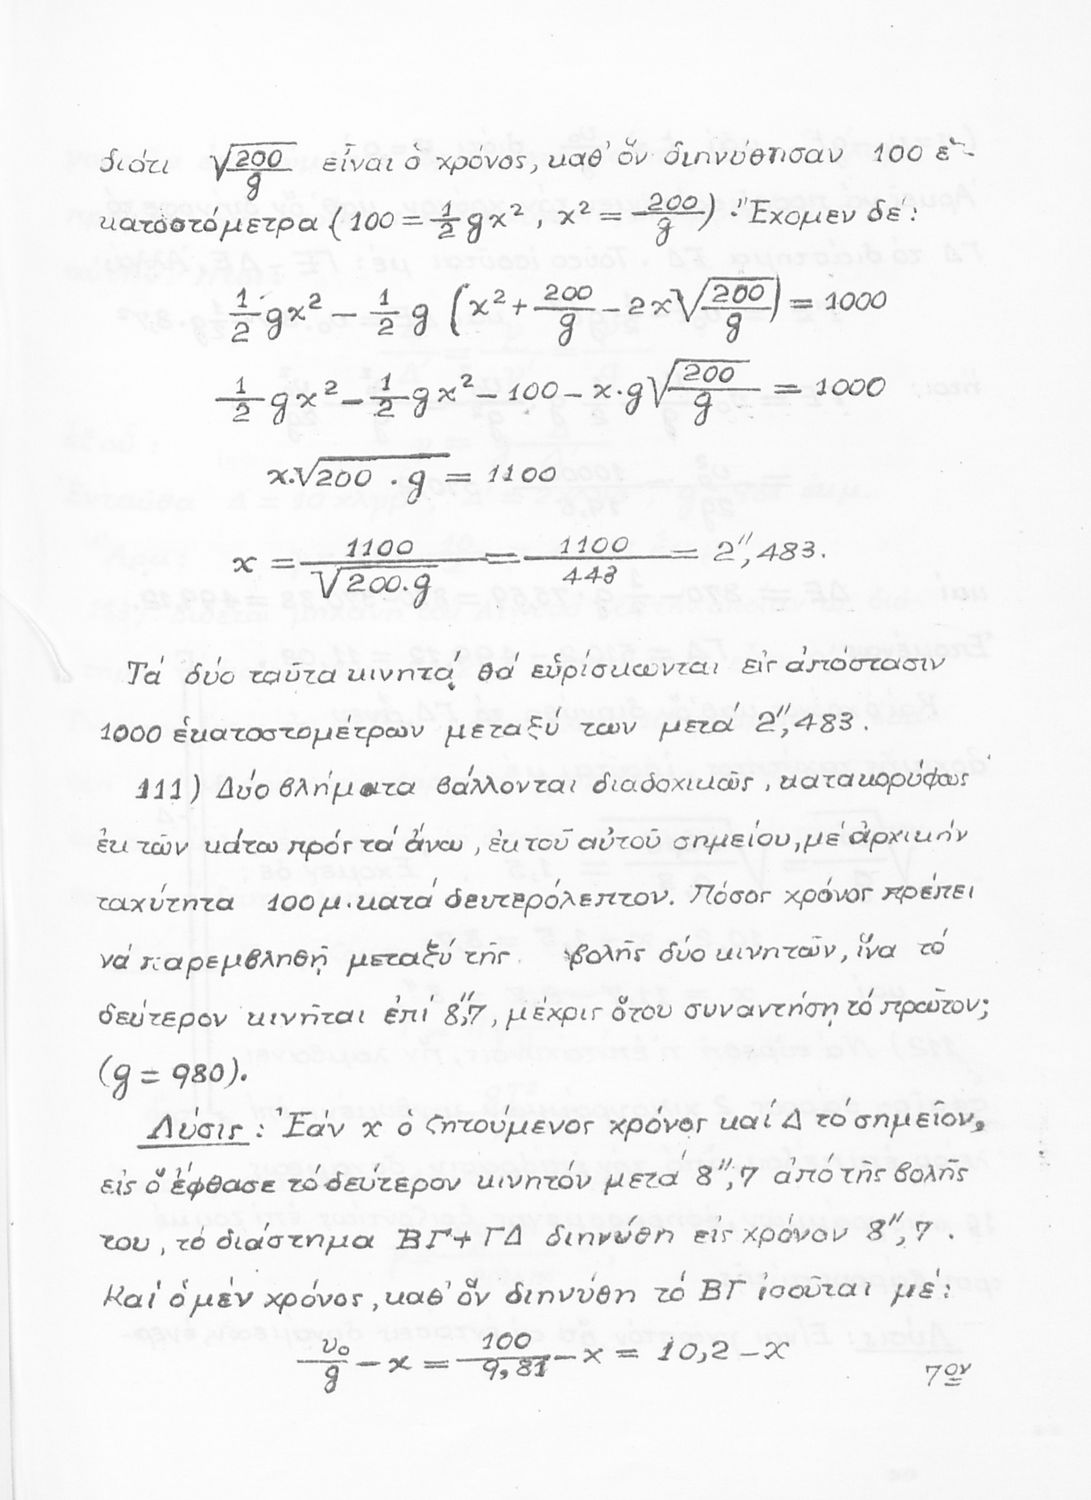 διότι √200/g εἶναι ὁ χρόνος, καθ' ὅν διηνύθησαν 100 ἑ-
κατοστόμετρα (100 = 1/2 gx², x² = 200/g). Ἔχομεν δέ:
1/2 gx² - 1/2 g (x² + 200/g - 2x√200/g) = 1000
1/2 gx² - 1/2 gx² - 100 - x·g√200/g = 1000
x·√200 . g = 1100
x = 1100/√200·g = 1100/443 = 2'',483.
Τά δύο ταῦτα κινητά θά εὑρίσκωνται εἰς ἀπόστασιν
1000 ἑκατοστομέτρων μεταξύ των μετά 2'',483.
111) Δύο βλήματα βάλλονται διαδοχικῶς, κατακορύφως
ἐκ τῶν κάτω πρός τά ἄνω, ἐκ τοῦ αὐτοῦ σημείου, μέ ἀρχικήν
ταχύτητα 100 μ. κατά δευτερόλεπτον. Πόσος χρόνος πρέπει
νά παρεμβληθῇ μεταξύ τῆς βολῆς δύο κινητῶν, ἵνα τό
δεύτερον κινῆται ἐπί 8'',7, μέχρις ὅτου συναντήσῃ τό πρῶτον;
(g = 980).
Λύσις: Ἐάν x ὁ ζητούμενος χρόνος καί Δ τό σημεῖον,
εἰς ὅ ἔφθασε τό δεύτερον κινητόν μετά 8'',7 ἀπό τῆς βολῆς
του, τό διάστημα ΒΓ + ΓΔ διηνύθη εἰς χρόνον 8'',7.
Καί ὁ μέν χρόνος, καθ' ὅν διηνύθη τό ΒΓ ἰσοῦται μέ:
υ₀/g - x = 100/9,81 - x = 10,2 - x
7ον